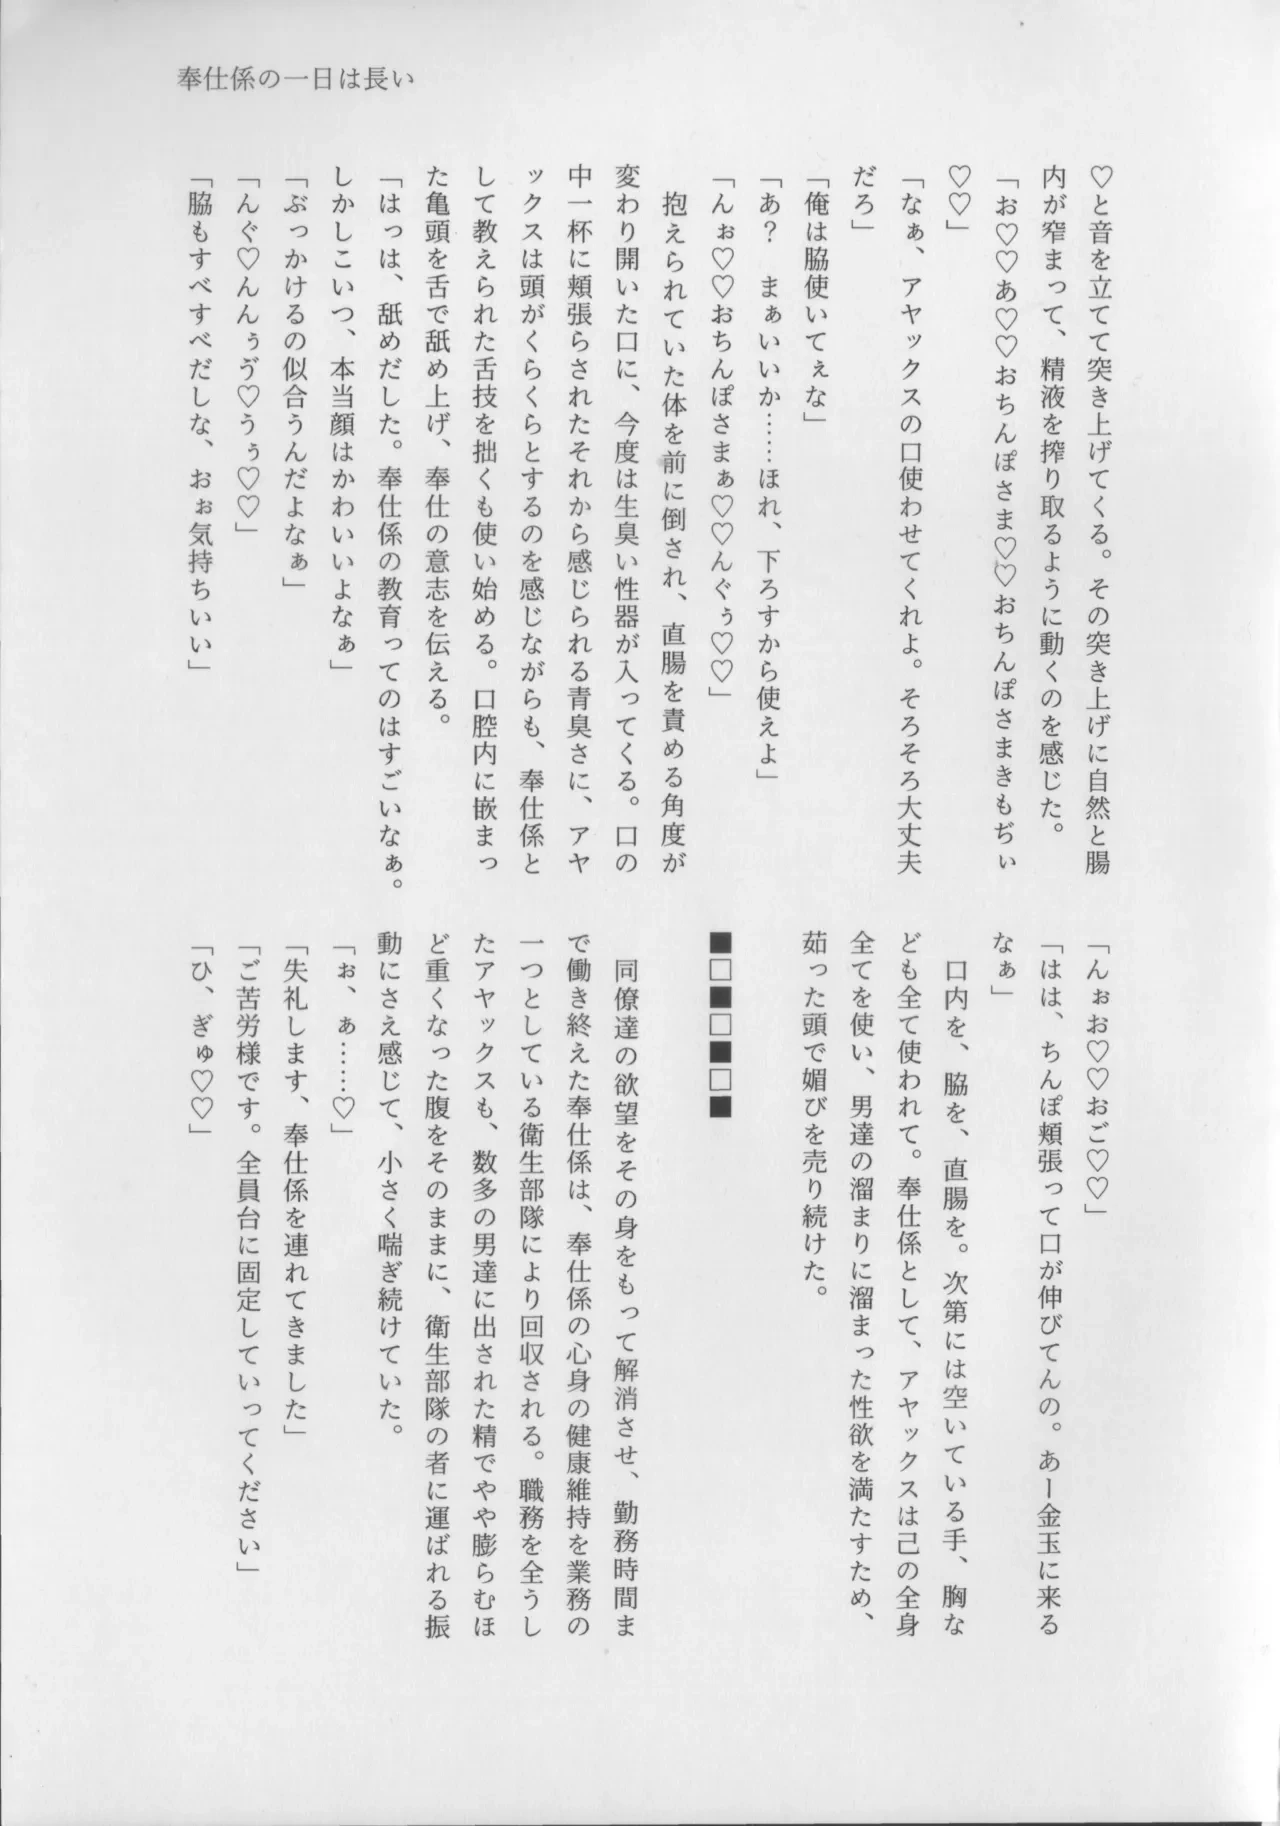 奉仕係の一日は長い
♡と音を立てて突き上げてくる。その突き上げに自然と腸
内が窄まって、精液を搾り取るように動くのを感じた。
「お♡♡あ♡♡おちんぽさま♡♡おちんぽさまきもぢぃ
♡♡」
「なぁ、アヤックスの口使わせてくれよ。そろそろ大丈夫
だろ」
「俺は脇使いてぇな」
「あ？　まぁいいか……ほれ、下ろすから使えよ」
「んぉ♡♡おちんぽさまぁ♡♡んぐぅ♡♡」
　抱えられていた体を前に倒され、直腸を責める角度が
変わり開いた口に、今度は生臭い性器が入ってくる。口の
中一杯に頬張らされたそれから感じられる青臭さに、アヤ
ックスは頭がくらくらとするのを感じながらも、奉仕係と
して教えられた舌技を拙くも使い始める。口腔内に嵌まっ
た亀頭を舌で舐め上げ、奉仕の意志を伝える。
「はっは、舐めだした。奉仕係の教育ってのはすごいなぁ。
しかしこいつ、本当顔はかわいいよなぁ」
「ぶっかけるの似合うんだよなぁ」
「んぐ♡んんぅゔ♡うぅ♡♡」
「脇もすべすべだしな、おぉ気持ちいい」
「んぉお♡♡おご♡♡」
「はは、ちんぽ頬張って口が伸びてんの。あー金玉に来る
なぁ」
　口内を、脇を、直腸を。次第には空いている手、胸な
ども全て使われて。奉仕係として、アヤックスは己の全身
全てを使い、男達の溜まりに溜まった性欲を満たすため、
茹った頭で媚びを売り続けた。
■□■□■□■
　同僚達の欲望をその身をもって解消させ、勤務時間ま
で働き終えた奉仕係は、奉仕係の心身の健康維持を業務の
一つとしている衛生部隊により回収される。職務を全うし
たアヤックスも、数多の男達に出された精でやや膨らむほ
ど重くなった腹をそのままに、衛生部隊の者に運ばれる振
動にさえ感じて、小さく喘ぎ続けていた。
「ぉ、ぁ……♡」
「失礼します、奉仕係を連れてきました」
「ご苦労様です。全員台に固定していってください」
「ひ、ぎゅ♡♡」